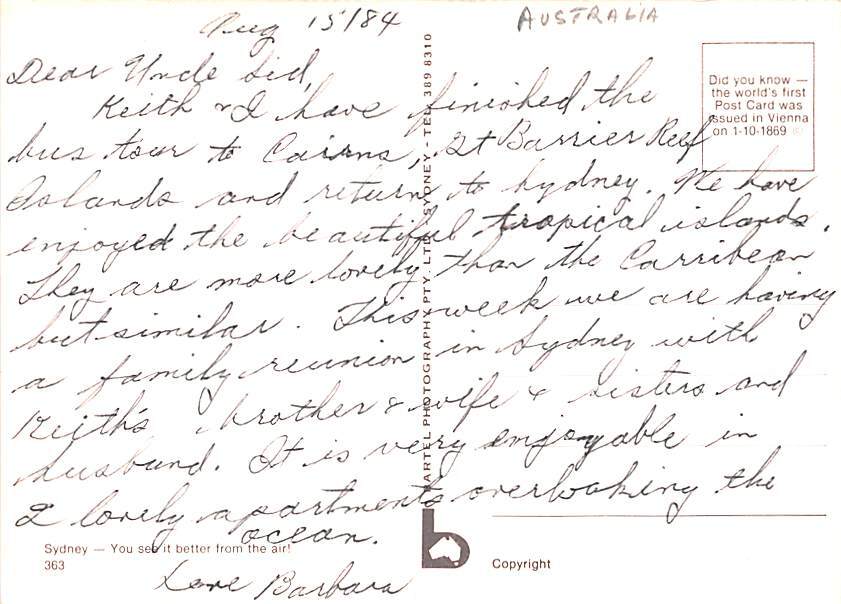 Aug 15/84
AUSTRALIA
Dear Uncle Sid,
Keith & I have finished the
bus tour to Cairns, Gt Barrier Reef
Islands and return to Sydney. We have
enjoyed the beautiful tropical islands.
They are more lovely than the Carribean
but similar. This week we are having
a family reunion in Sydney with
Keith's brother & wife & sisters and
husband. It is very enjoyable in
2 lovely apartments overlooking the
ocean.
Love Barbara
Did you know —
the world's first
Post Card was
issued in Vienna
on 1-10-1869 ©
BARTEL PHOTOGRAPHY PTY. LTD. SYDNEY - TEL. 389 8310
b
Sydney — You see it better from the air!
363
Copyright